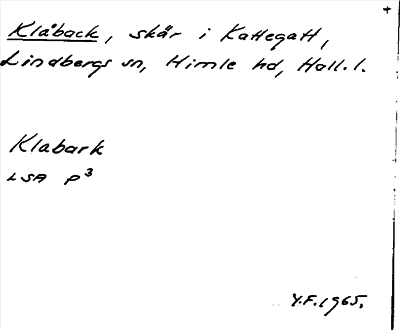 +
Klåback, skär i Kattegatt,
Lindbergs sn, Himle hd, Hall. l.
Klabark
LSA P³
Y.F. 1965.